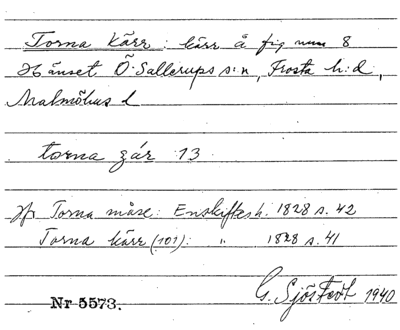 Torna Kärr: kärr å fig num 8
Hänset Ö. Sallerups s:n, Frosta h:d,
Malmöhus l
torna zár 13
Jfr Torna måse: Enskiftesh. 1828 s. 42
Torna kärr (101): " 1828 s. 41
G. Sjöstedt 1940
Nr 5573.